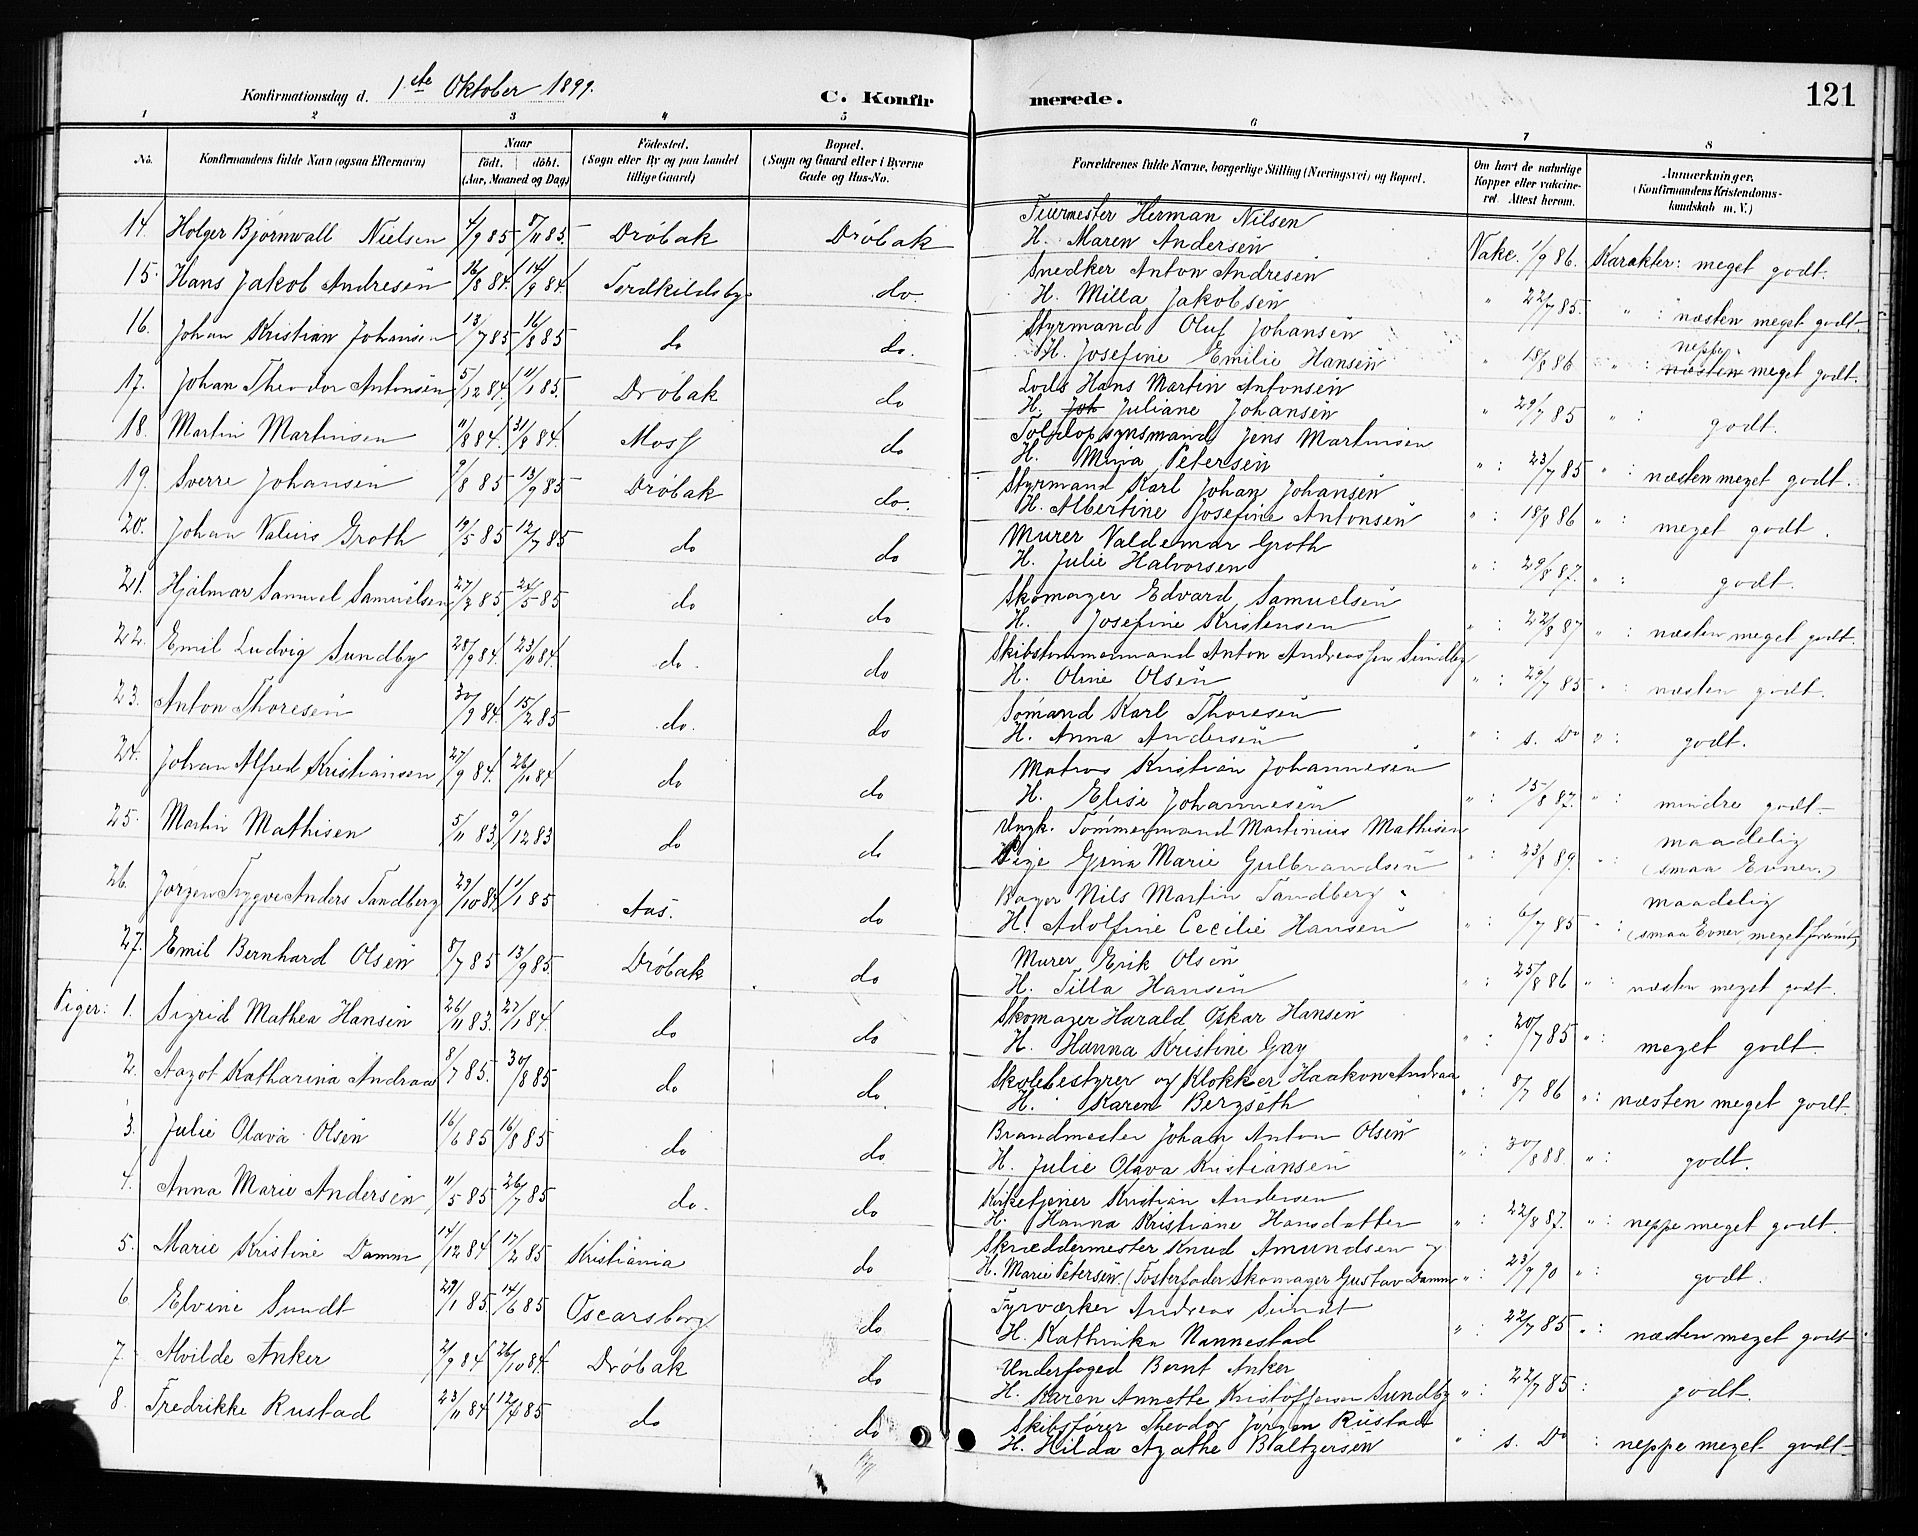 Konfirmationsdag d. 1ste Oktober 1899.
C. Konfirmerede.
121
1 2 3 4 5 6 7 8
No. | Konfirmandens fulde Navn (ogsaa Efternavn) | Naar født. døbt. (Aar, Maaned og Dag) | Fødested. (Sogn eller By og paa Landet tillige Gaard) | Bopæl. (Sogn og Gaard eller i Byerne Gade og Hus-No. | Forældrenes fulde Navne, borgerlige Stilling (Næringsvei) og Bopæl. | Om havt de naturlige Kopper eller vaccineret. Attest herom. | Anmerkninger. (Konfirmandens Kristendomskundskab m. V.)
14. Holger Bjørnwall Nielsen 4/9 85 8/11 85. Drøbak Drøbak Feiermester Herman Nilsen
H. Maren Andersen Vakc. 1/9 86. Karakter: meget godt.
15. Hans Jakob Andresen 16/8 84. 14/9 84. Tordkildsby. do. Snedker Anton Andresen
H. Milla Jakobsen " 22/7 85. " : næsten meget godt.
16. Johan Kristian Johansen 13/7 85 16/8 85 do do. Styrmand Oluf Johansen
H. Josefine Emilie Hansen " 18/8 86 " : neppe næsten meget godt.
17. Johan Theodor Antonsen 5/12 84. 11/1 85. Drøbak do Lods Hans Martin Antonsen
H. Joh Juliane Johansen " 29/7 85 " : godt.
18. Martin Martinsen 11/8 84. 31/8 84. Moss do Toldopsynsmand Jens Martinsen
H. Mina Petersen " : 23/7 85 " : næsten meget godt.
19. Sverre Johansen 9/8 85 13/9 85 Drøbak do. Styrmand Karl Johan Johansen
H. Albertine Josefine Antonsen " : 18/8 86 " : meget godt.
20. Johan Valeurs Groth 19/5 85 12/7 85 do do Murer Valdemar Groth
H. Julie Halvorsen " : 29/8 87. " : godt.
21. Hjalmar Samuel Samuelsen 27/2 85 24/5 85 do do Skomager Edvard Samuelsen
H. Josefine Kristensen " : 22/8 87 " : næsten meget godt.
22. Emil Ludvig Sundby 28/9 84. 23/11 84. do. do Skibstømmermand Anton Andreassen Sundby
H. Oline Olsen " : 29/7 85 " : næsten godt.
23. Anton Thoresen 30/9 84. 15/2 85 do. do Sømand Karl Thoresen
H. Anna Andersen " : s. Do " : godt.
24. Johan Alfred Kristiansen 27/9 84. 26/10 84 do do Matros Kristian Johannesen
H. Elise Johannesen " : 15/8 87. " : mindre godt.
25. Martin Mathisen 5/11 83. 9/12 83 do do Ungk. Tømmermand Martinius Mathisen
Pige Grina Marie Gulbrandsen " : 23/8 89. " : maadelig (smaa Evner.)
26. Jørgen Trygve Anders Tandberg 29/10 84 11/1 85 Aas. do Bager Nils Martin Tandberg
H. Adolfine Cecilie Hansen " : 6/7 85 " : maadelig (smaa Evner
27. Emil Bernhard Olsen 8/7 85 13/9 85. Drøbak do Murer Erik Olsen
H. Tilla Hansen " : 25/8 86 " : næsten meget godt.
Piger: 1. Sigrid Mathea Hansen 26/11 83. 27/1 84. do do Skomager Harald Oskar Hansen
H. Hanna Kristine Gay " : 20/7 85 " : meget godt.
2. Aagot Katharina Andraa 8/7 85. 30/8 85 do do. Skolebestyrer og Klokker Haakon Andraa
H. Karen Bergseth " : 8/7 86 " : næsten meget godt.
3. Julie Olava Olsen 16/6 85 16/8 85 do do Brandmester Johan Anton Olsen
H. Julie Olava Kristiansen " : 30/8 88. " : godt.
4. Anna Marie Andersen 11/5 85 26/7 85 do. do Kirketjener Kristian Andersen
H. Hanna Kristiane Hansdatter " : 22/8 87. " : neppe meget godt.
5. Marie Kristine Damm 14/12 84 17/2 85 Kristiania do Skræddermester Knud Amundsen og
H. Marie Petersen (Fosterfader Skomager Gustav Damm " : 23/9 90 " : godt.
6 Elvine Sundt 29/1 85. 14/6 85 Oscarsborg do Fyrværker Andreas Sundt
H. Kathinka Nannestad " : 22/7 85 " : næsten meget godt
7 Alvilde Anker 2/9 84 26/10 84. Drøbak do Underfoged Bernt Anker
H. Karen Annette Kristoffersen Sundby " : 22/7 85 : godt.
8. Fredrikke Rustad 23/11 84 12/4 85 do do Skibsfører Theodor Jørgen Rustad
H. Hilda Agathe Baltzersen " : s. Do : neppe meget godt.